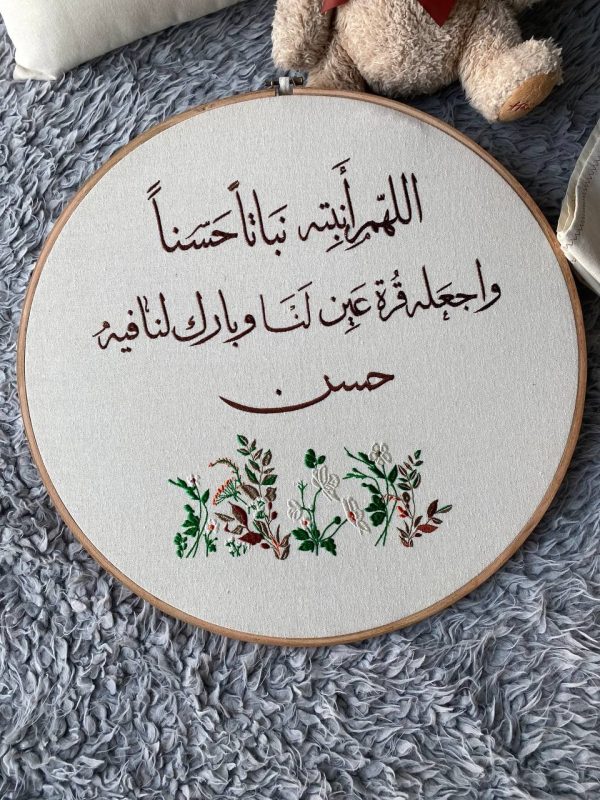 اللهم أَنبِته نَباتاً حَسّناً
واجعَله قُرة عَين لَنَا وبارك لنا فيهُ
حسن